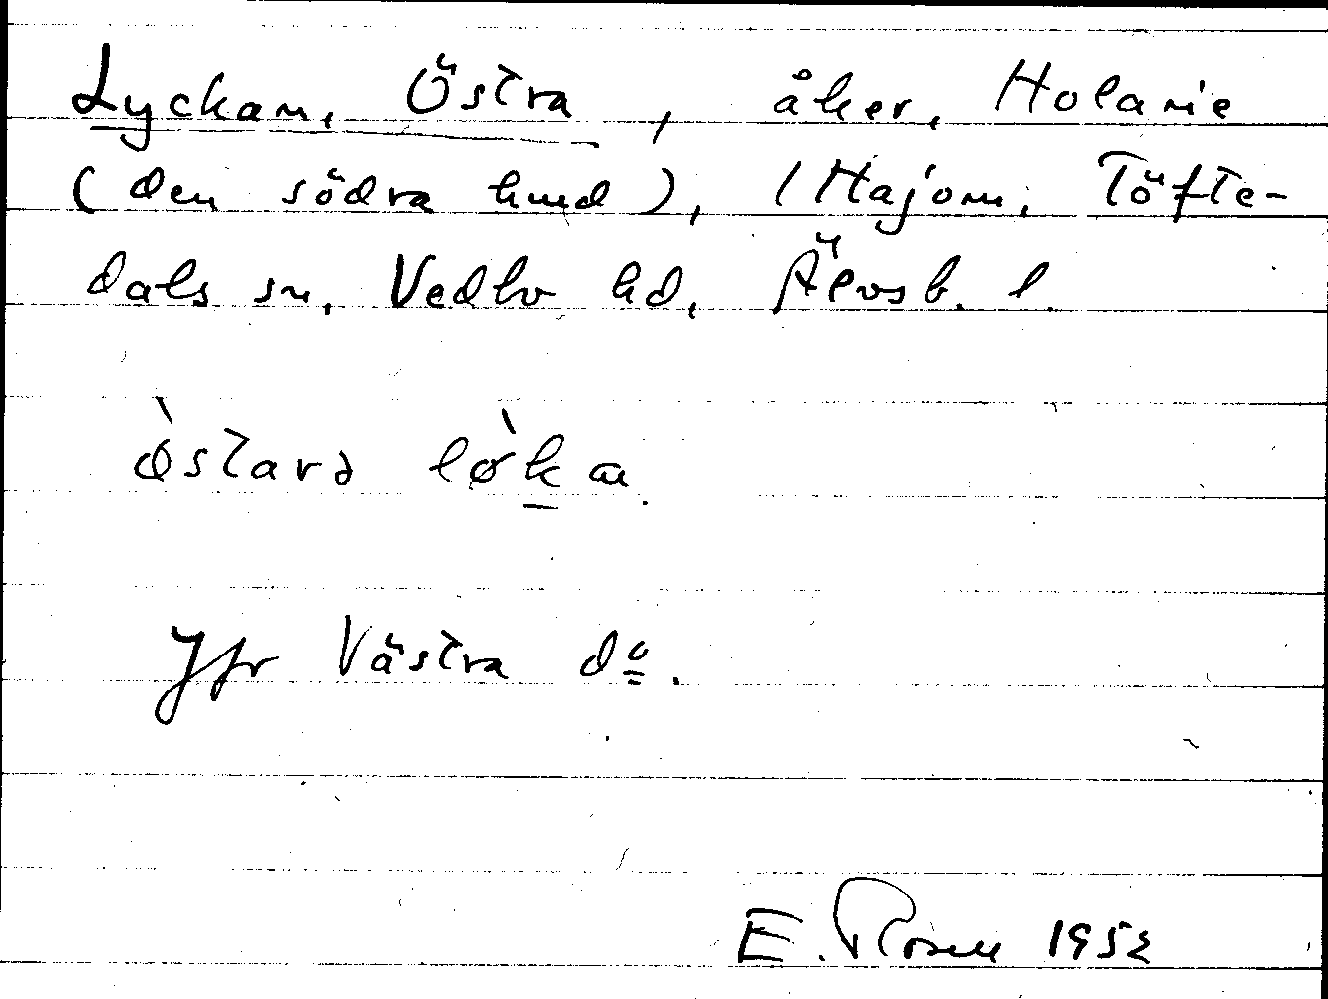 Lyckan, Östra, åker, Holanie
(den södra hmd), (Hajom, Töfte-
dals sn, Vedbo hd, Älvsb. l.
òstarə lø̀k a.
Jfr Västra dº.
E. Rosen 1952